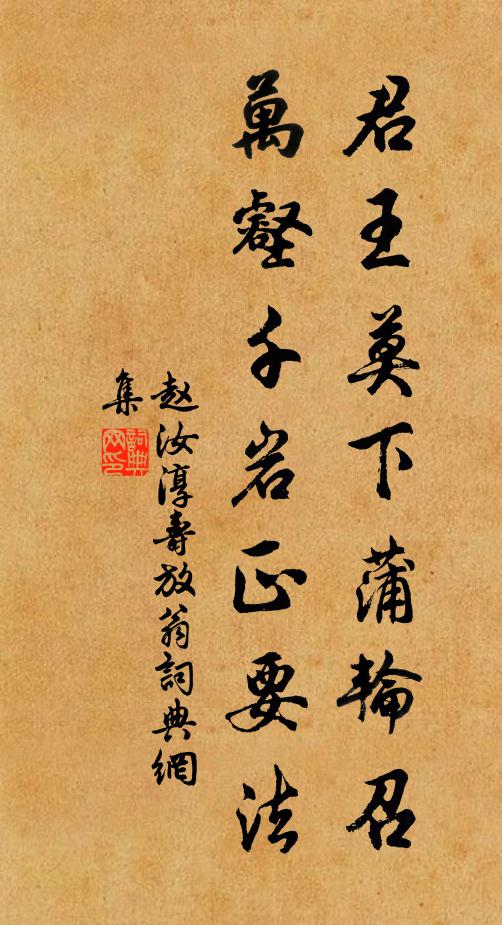 君王莫下蒲輪召
萬壑千岩正要法
赵汝淳壽放翁詞典網
集
詞典網印